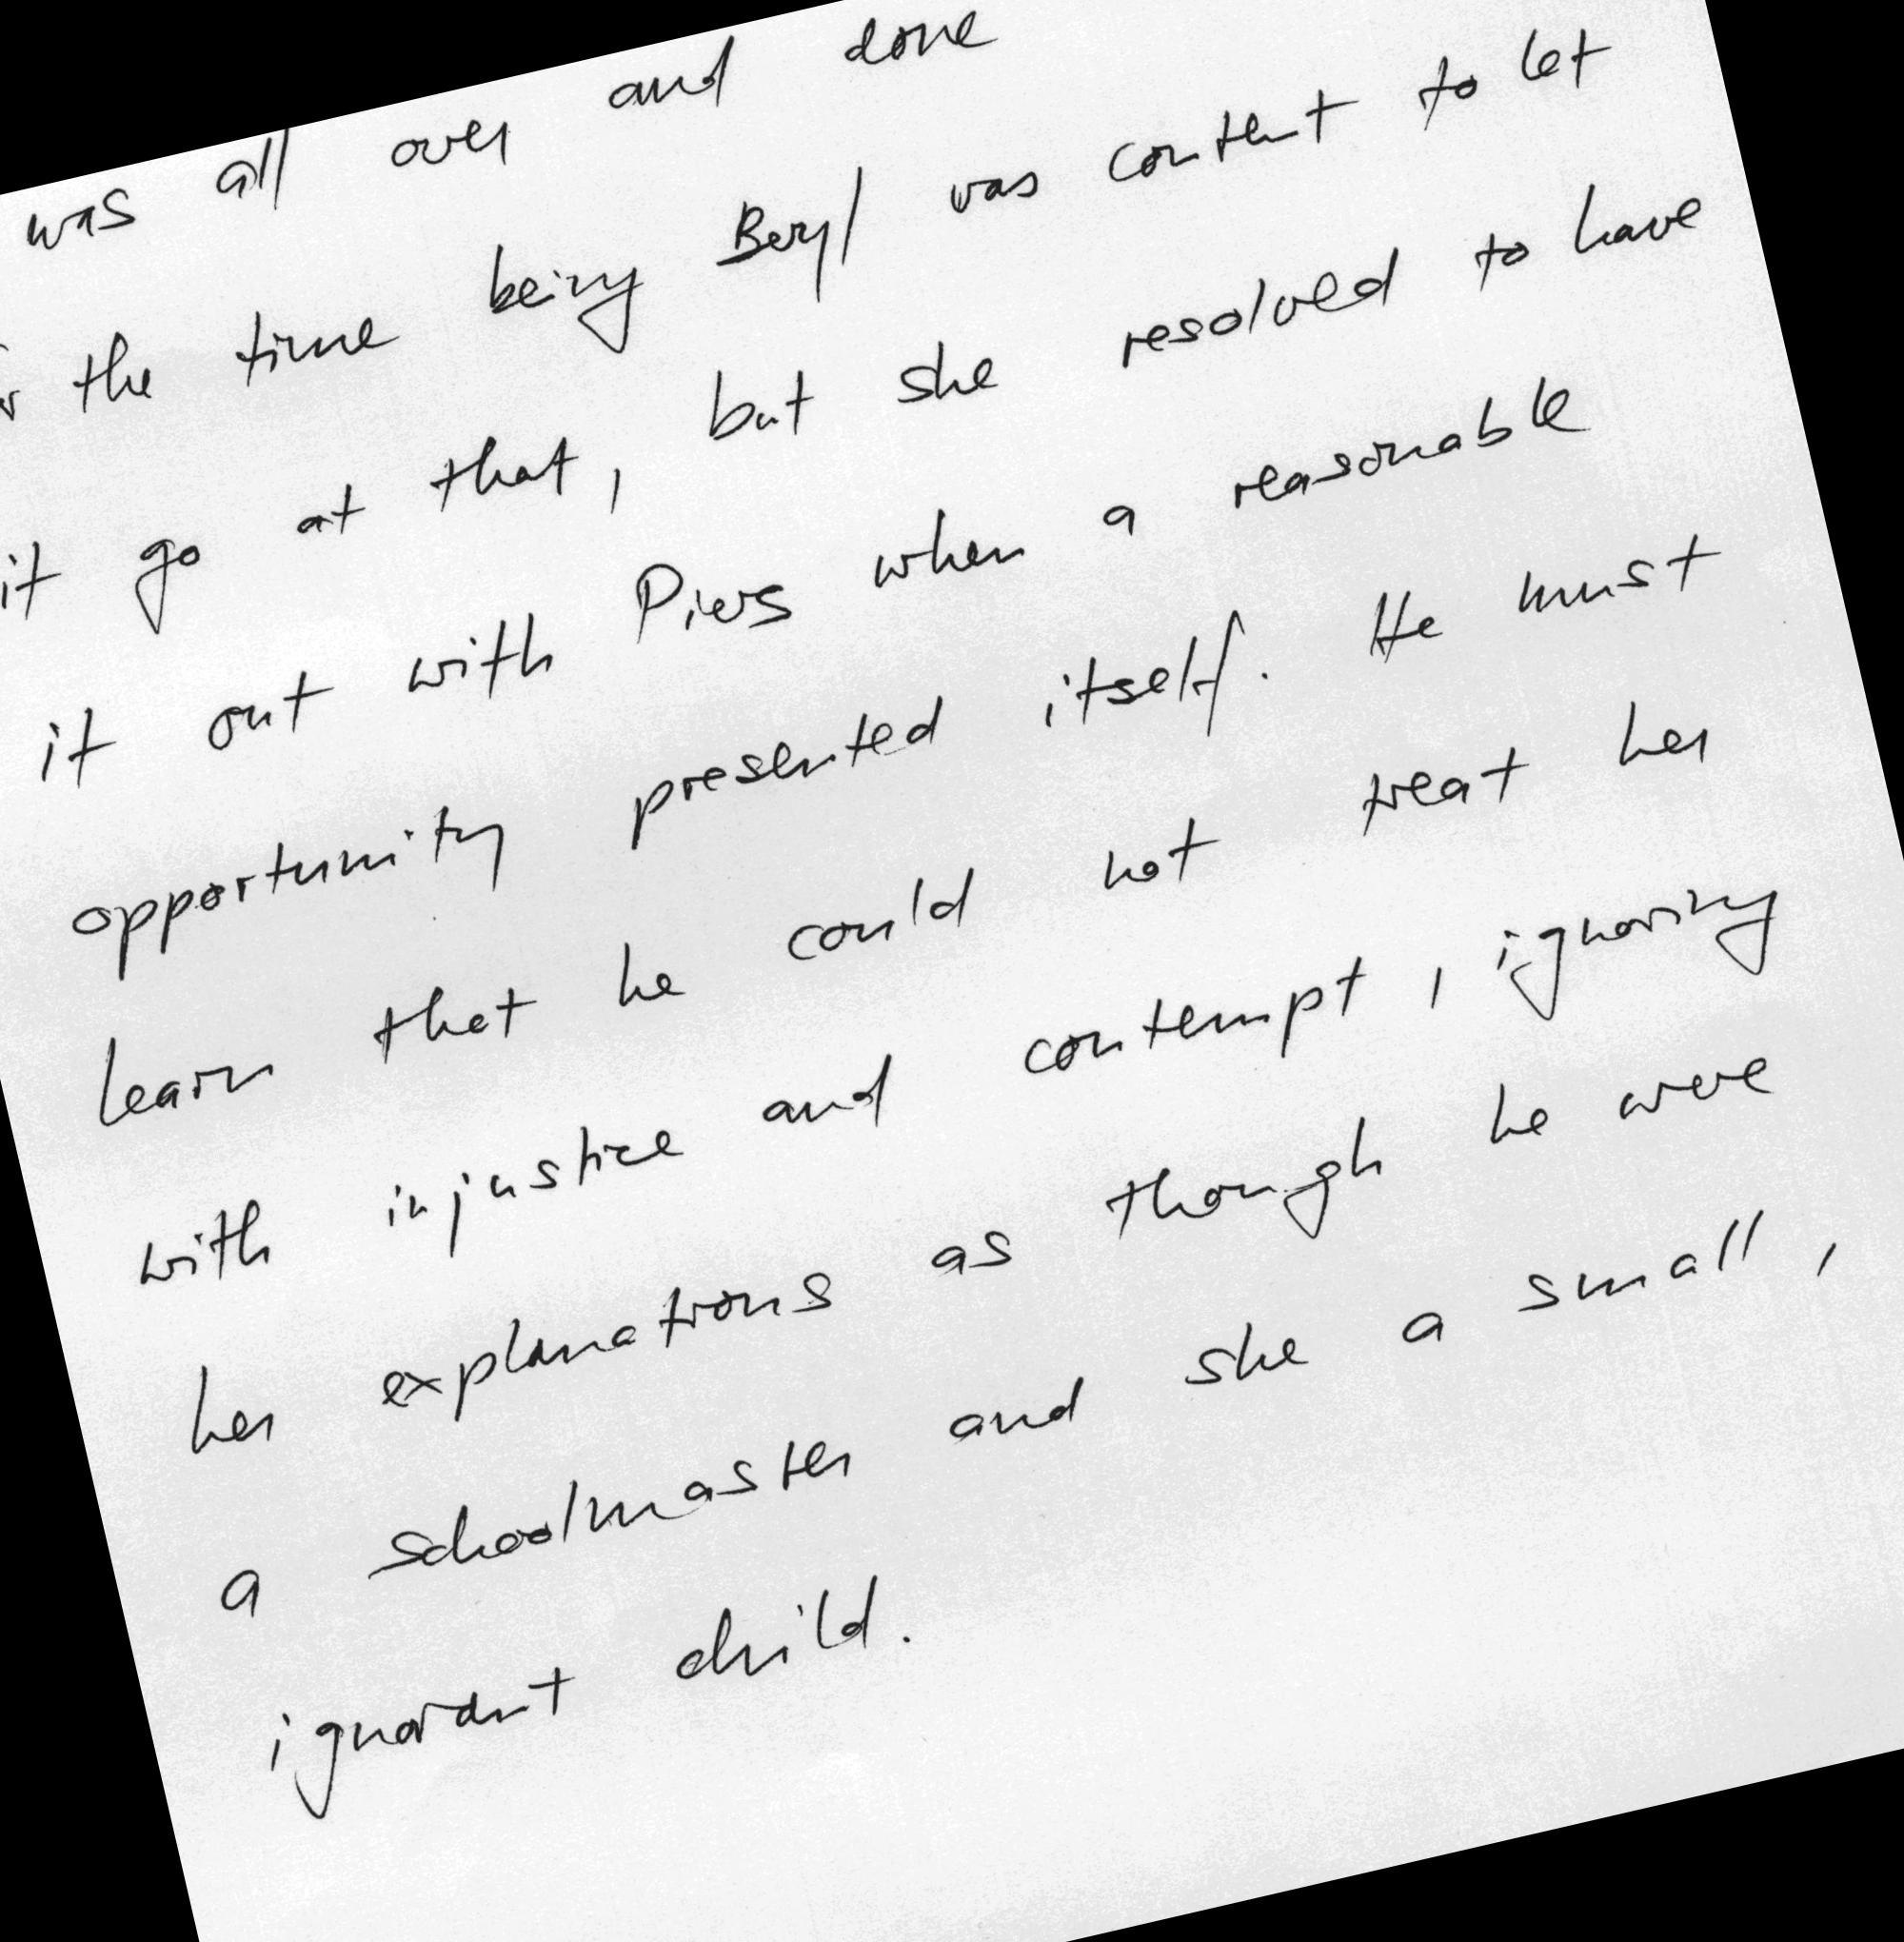 was all over and done
the time being Beryl was content to let
it go at that, but she resolved to have
it out with Piers when a reasonable
opportunity presented itself. He must
learn that he could not treat her
with injustice and contempt, ignoring
her explanations as though he were
a schoolmaster and she a small,
ignorant child.